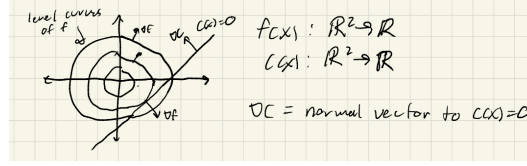 level curves
of f
∇f
∇C
C(x)=0
∇f
f(x): ℝ²→ℝ
C(x): ℝ²→ℝ
∇C = normal vector to C(x)=0